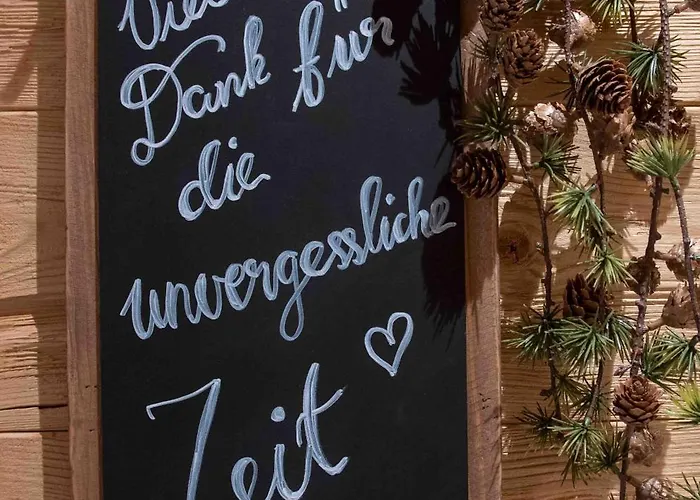 Vielen
Dank für
die
unvergessliche
Zeit